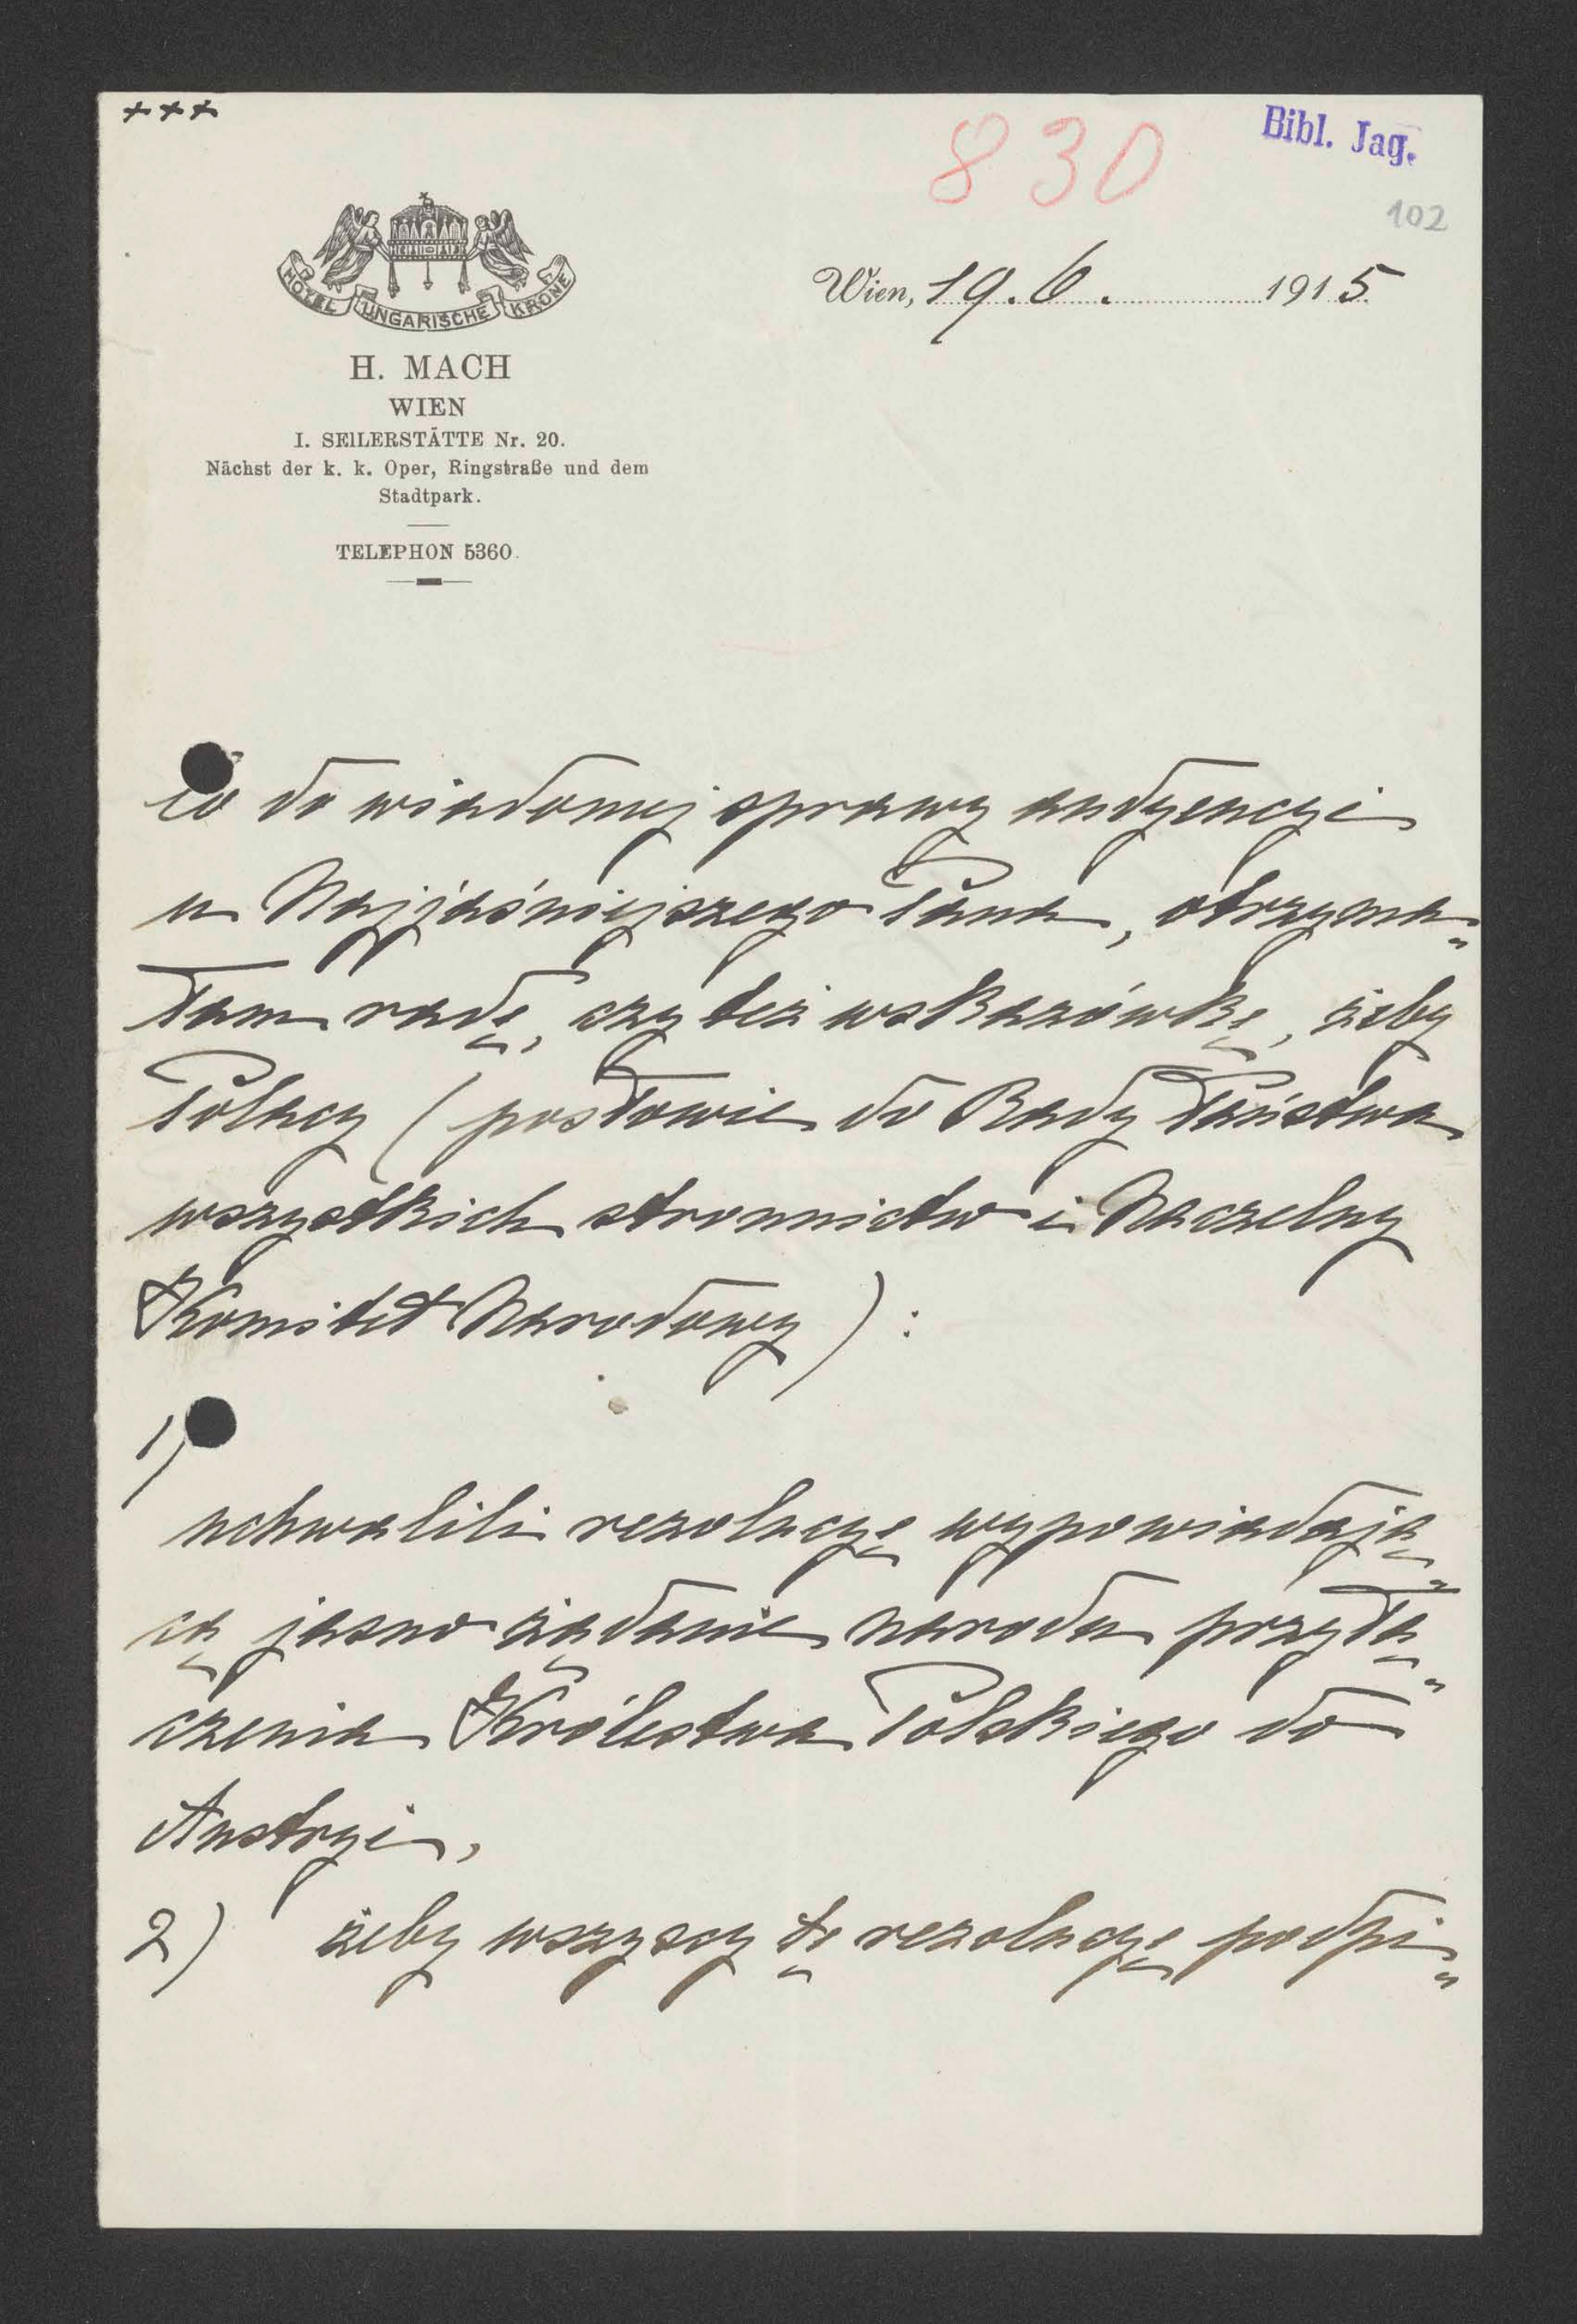 +++
830
Bibl. Jag.
102
HOTEL UNGARISCHE KRONE
Wien, 19. 6. 1915
H. MACH
WIEN
I. SEILERSTÄTTE Nr. 20.
Nächst der k. k. Oper, Ringstraße und dem
Stadtpark.
TELEPHON 5360.
Co do wiadomej sprawy audyencyi
u Najjaśniejszego Pana, otrzyma„
łam radę, czy też wskazówkę, żeby
Polacy (posłowie do Rady Państwa
wszystkich stronnictw i Naczelny
Komitet Narodowy) :
1)
uchwalili rezolucyę wypowiadają„
cą jasno żądanie narodu przyłą„
czenia Królestwa Polskiego do
Austryi,
2) żeby wszyscy tę rezolucyę podpi„